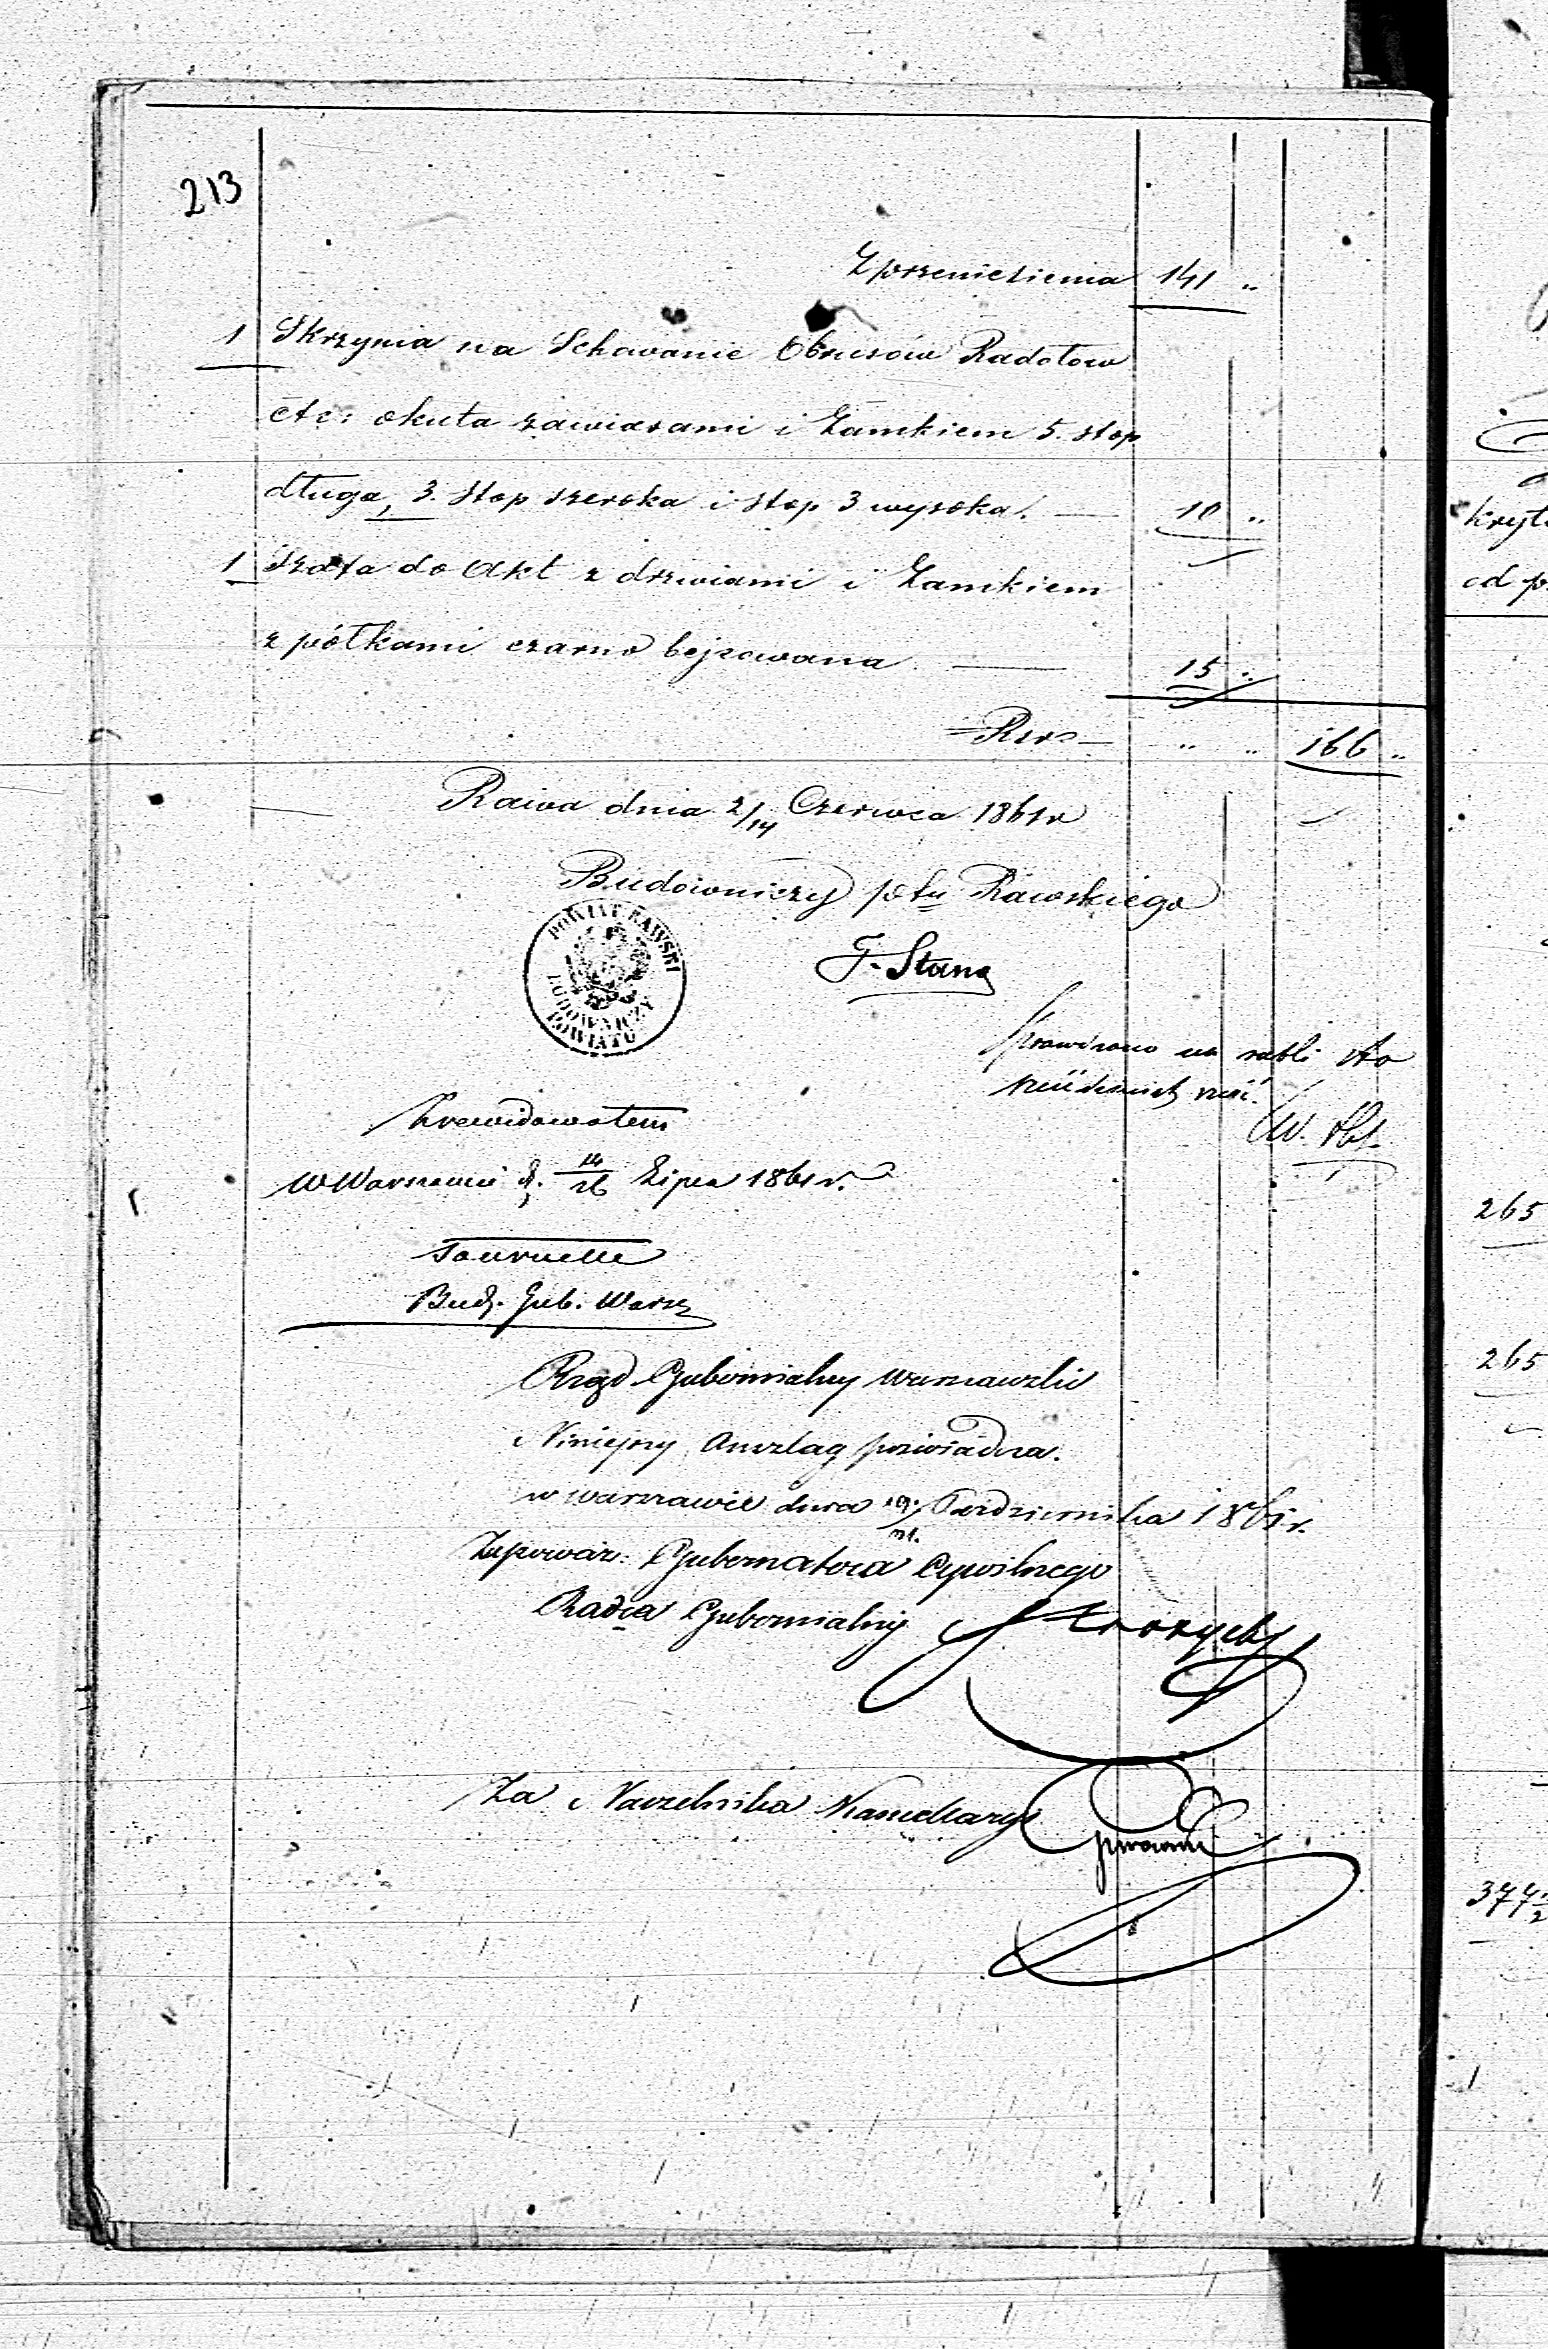 213
Z przeniesienia 141 "
1 Skrzynia na Schowanie Obrusów Radałow
etc: okuta zawiasami i Zamkiem 5. stop
długa, 3. stop szeroka i stop 3 wysoka. — 10 "
1 Szafa do Akt z drzwiami i Zamkiem
z półkami czarno bejcowana — 15 "
Rsr — " " 166 "
Rawa dnia 2/14 Czerwca 1861 r
Budowniczy ptu Rawskiego
POWIAT RAWSKI
BUDOWNICZY
POWIATU
F. Stanz
Sprawdzono na rubli sto
sześćdziesiąt sześć.
Zrewidowałem
W Warszawie d. 14/26 Lipca 1861 r.
Tournelle
Bud. Gub. Warsz
Rząd Gubernialny Warszawski
Niniejszy Anszlag poświadcza.
w Warszawie dnia 19/31. Października 1861 r.
Zupoważ: Gubernatora Cywilnego
Radca Gubernialny
Za Naczelnika Kancellaryi
kryt
od p
265
265
377 1/2